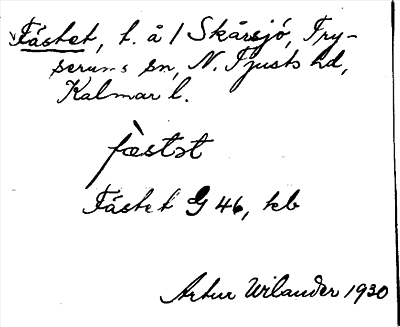 Fästet, t. å / Skårsjö, Try-
serums sn, N. Tjusts hd,
Kalmar l.
fæ̀stət
Fästet G 46, kb
Artur Wilander 1930